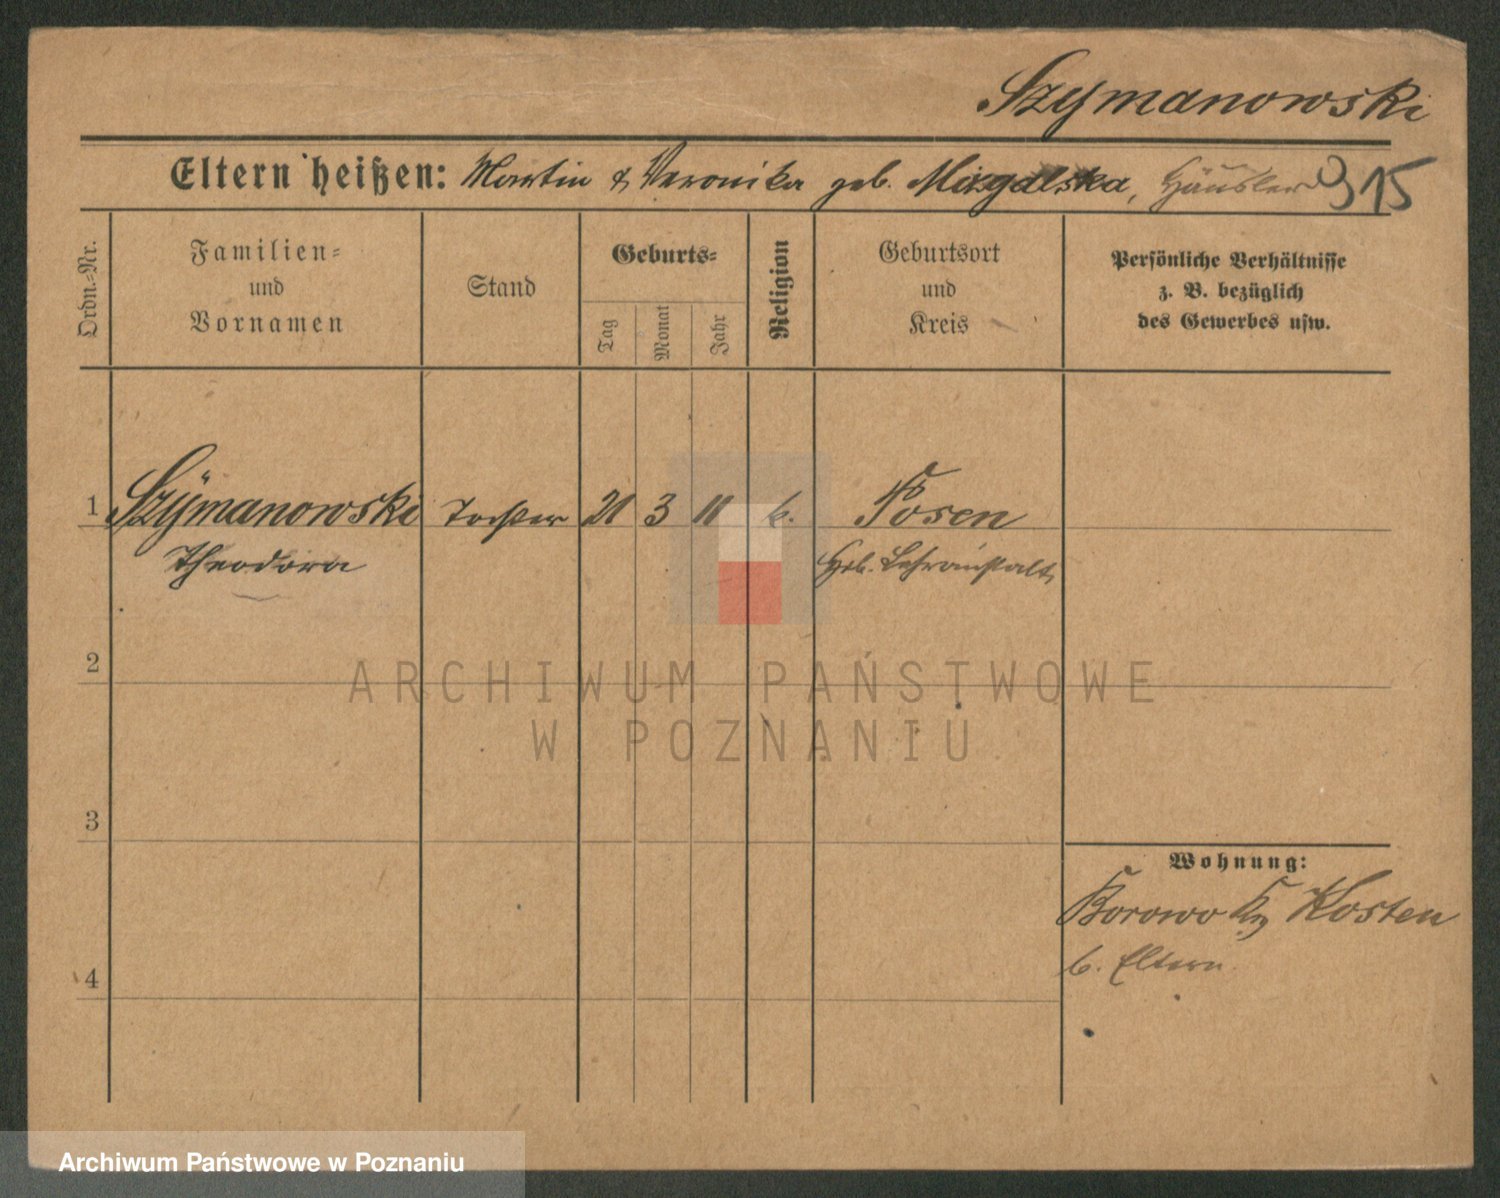 Szymanowski
Eltern heißen: Martin & Veronika geb. Häusler
315
Ordn.-Nr.
Familien-
und
Vornamen
Stand
Geburts-
Tag
Monat
Jahr
Religion
Geburtsort
und
Kreis
Persönliche Verhältnisse
z. B. bezüglich
des Gewerbes usw.
1 Szÿmanowski Tochter 21 3 11 k. Posen
Theodora Heb. Lehranstalt
2
ARCHIWUM PAŃSTWOWE
W POZNANIU
3
Wohnung:
Borowo Kr Kosten
b. Eltern
4
Archiwum Państwowe w Poznaniu